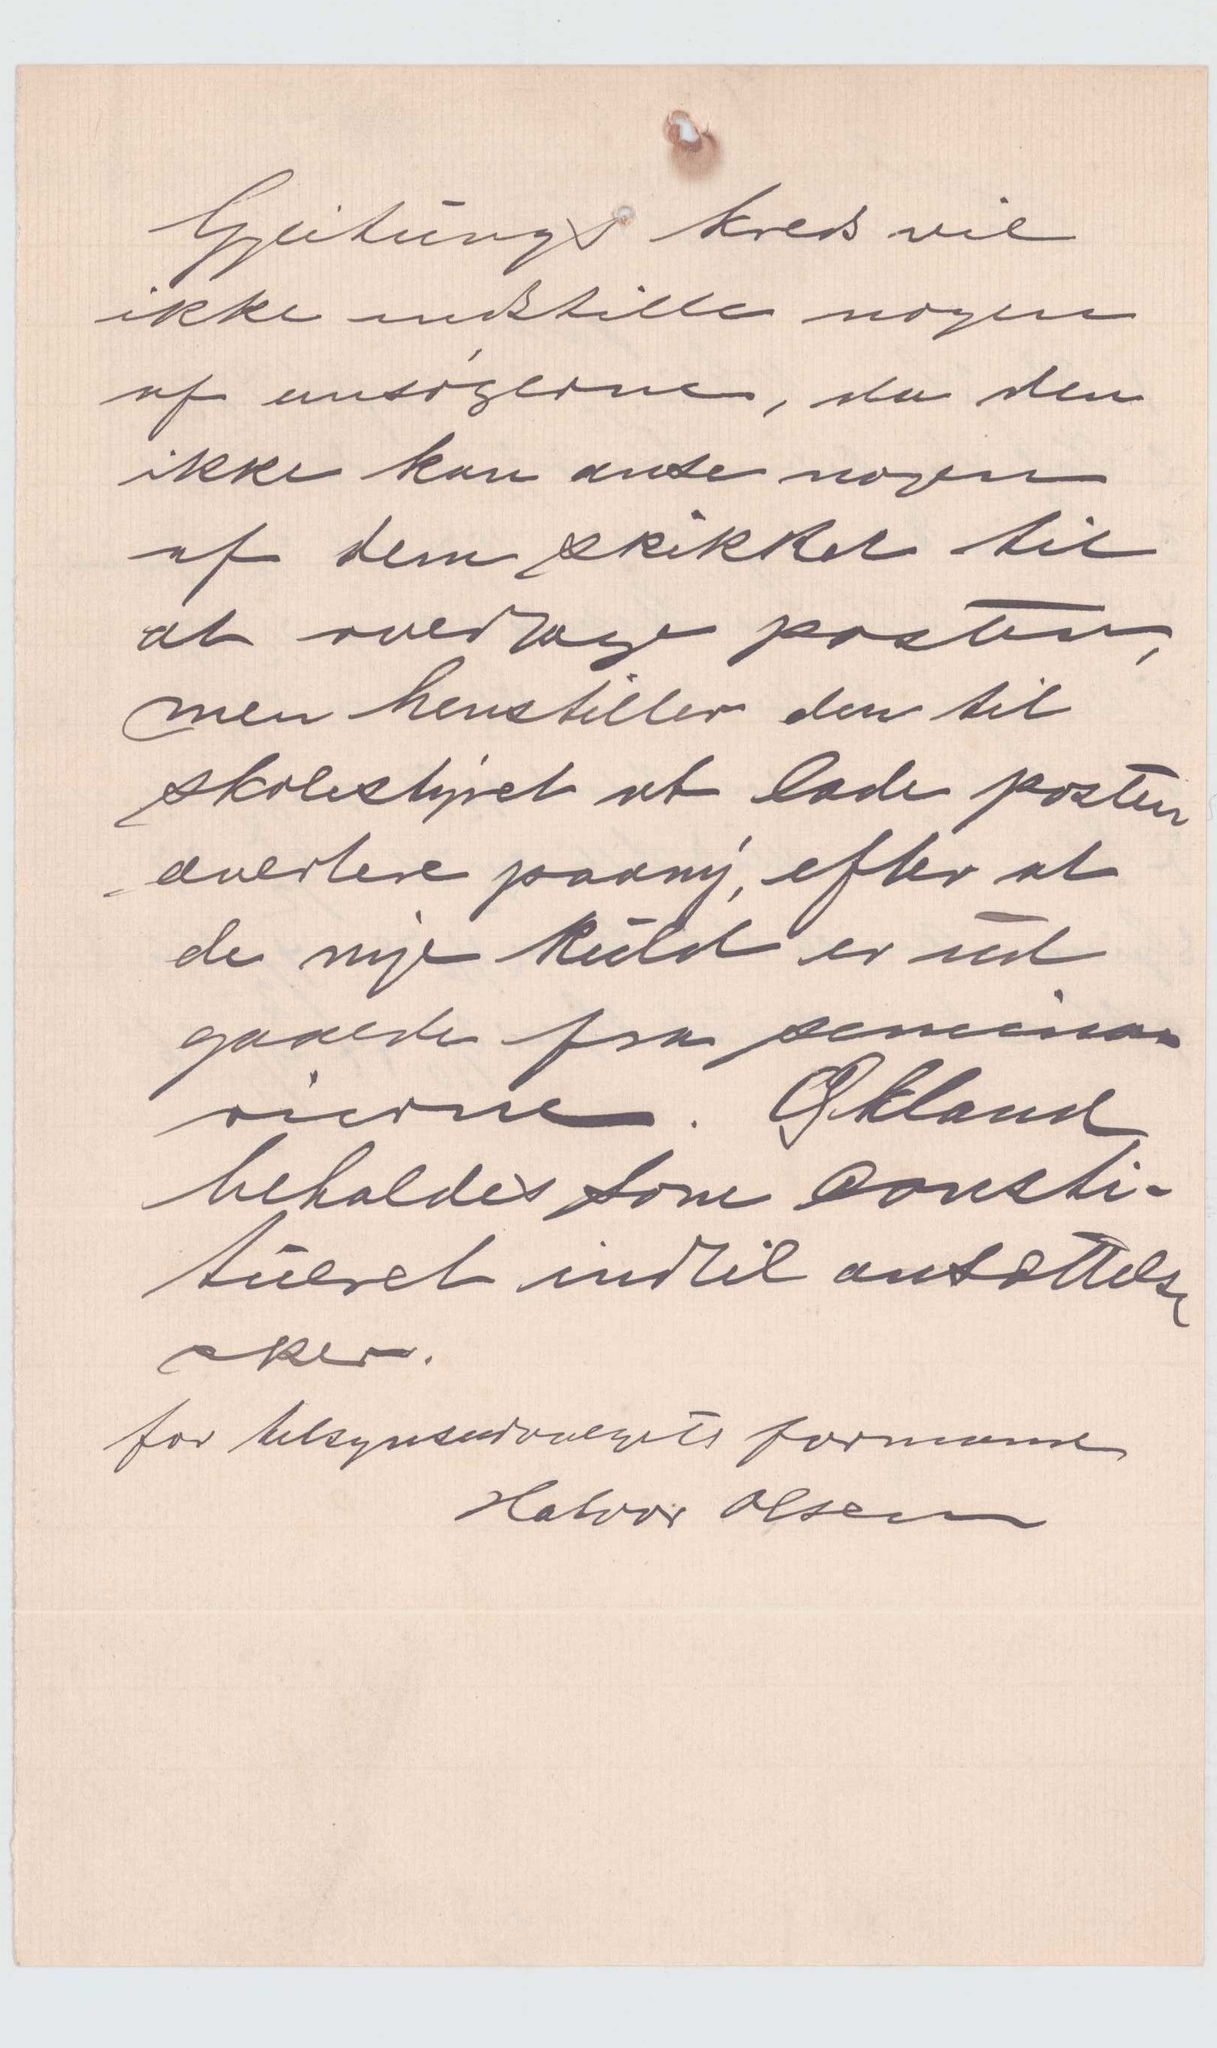 Gjeitungs kreds vil
ikke indstille nogen
af ansøgerne, da den
ikke kan anse nogen
af dem skikket til
at overtage posten,
men henstiller den til
skolestyret at lade posten
avertere paany, efter at
de nye kuld er ud
gaaede fra semina
rierne. Økland
beholdes som consti-
tueret indtil ansættelse
sker.
for tilsynsudvalgets formand
Halvor Olsen